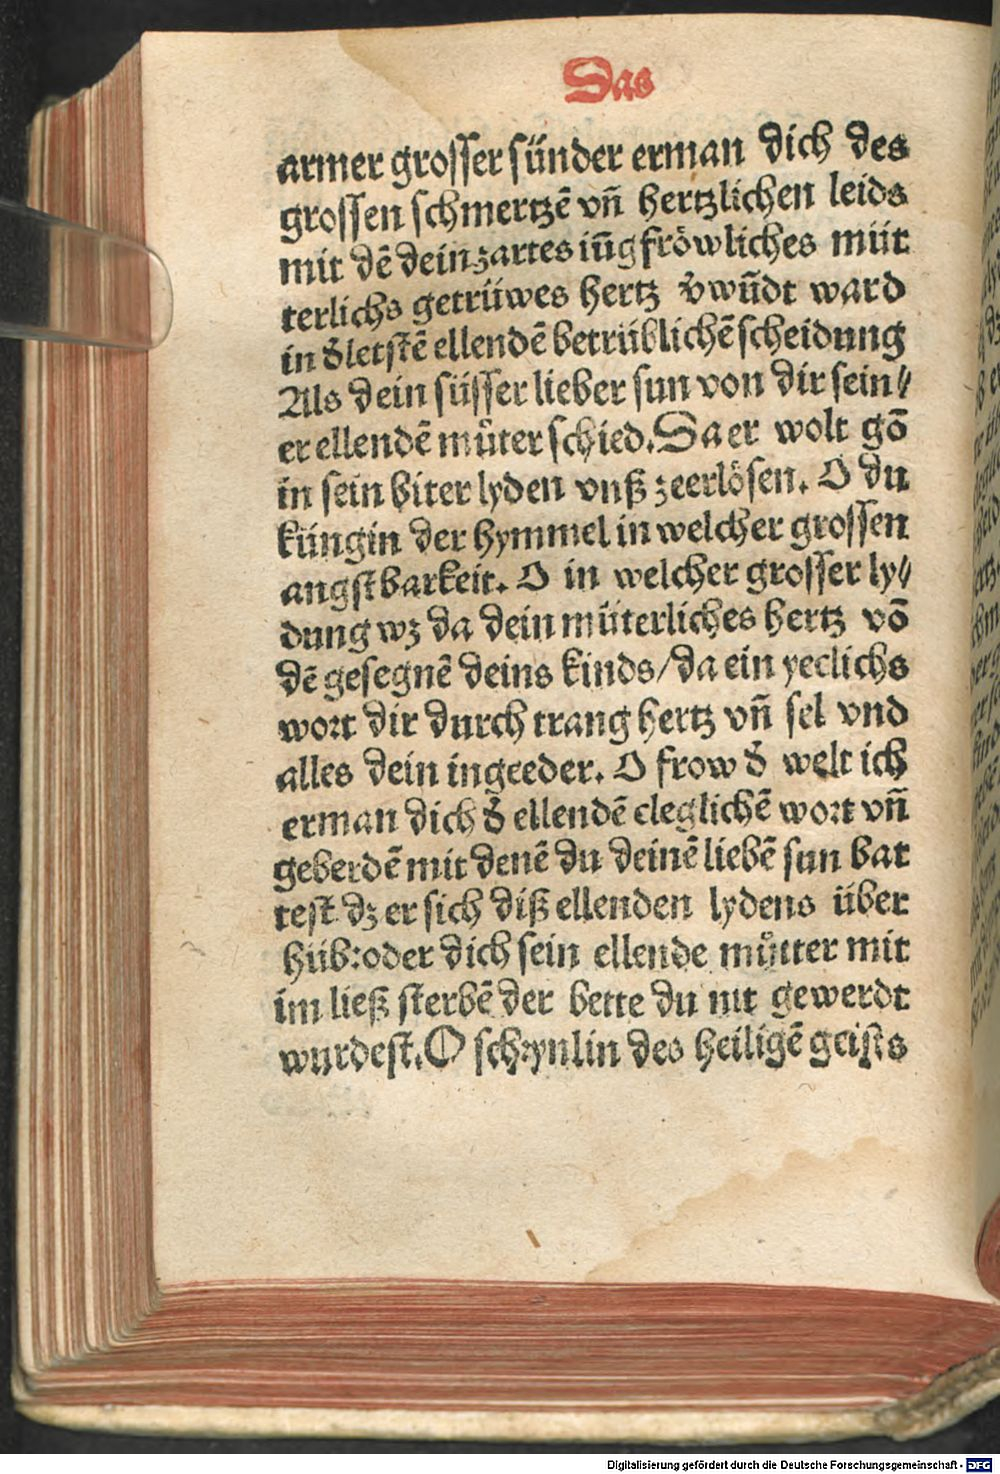 Das
armer grosser sünder erman dich des
grossen schmertzē vn̄ hertzlichen leids
mit dē dein zartes iūgfröwliches müt
terlichs getrüwes hertz v̄wūdt ward
in d̄ letstē ellendē betrüblichē scheidung
Als dein süsser lieber sun von dir sein⸗
er ellendē můter schied. Da er wolt gō
in sein biter lyden vnß zeerlösen. O du
küngin der hymmel in welcher grossen
angstbarkeit. O in welcher grosser ly⸗
dung wz da dein müterliches hertz vō
dē gesegnē deins kinds/da ein yeclichs
wort dir durch trang hertz vn̄ sel vnd
alles dein ingeeder. O frow d̄ welt ich
erman dich d̄ ellendē cleglichē wort vn̄
geberdē mit denē du deinē liebē sun bat
test dz er sich diß ellenden lydens über
hüb: oder dich sein ellende můtter mit
im ließ sterbē der bette du nit gewerdt
wurdest. O schrynlin des heiligē geists
Digitalisierung gefördert durch die Deutsche Forschungsgemeinschaft - DFG